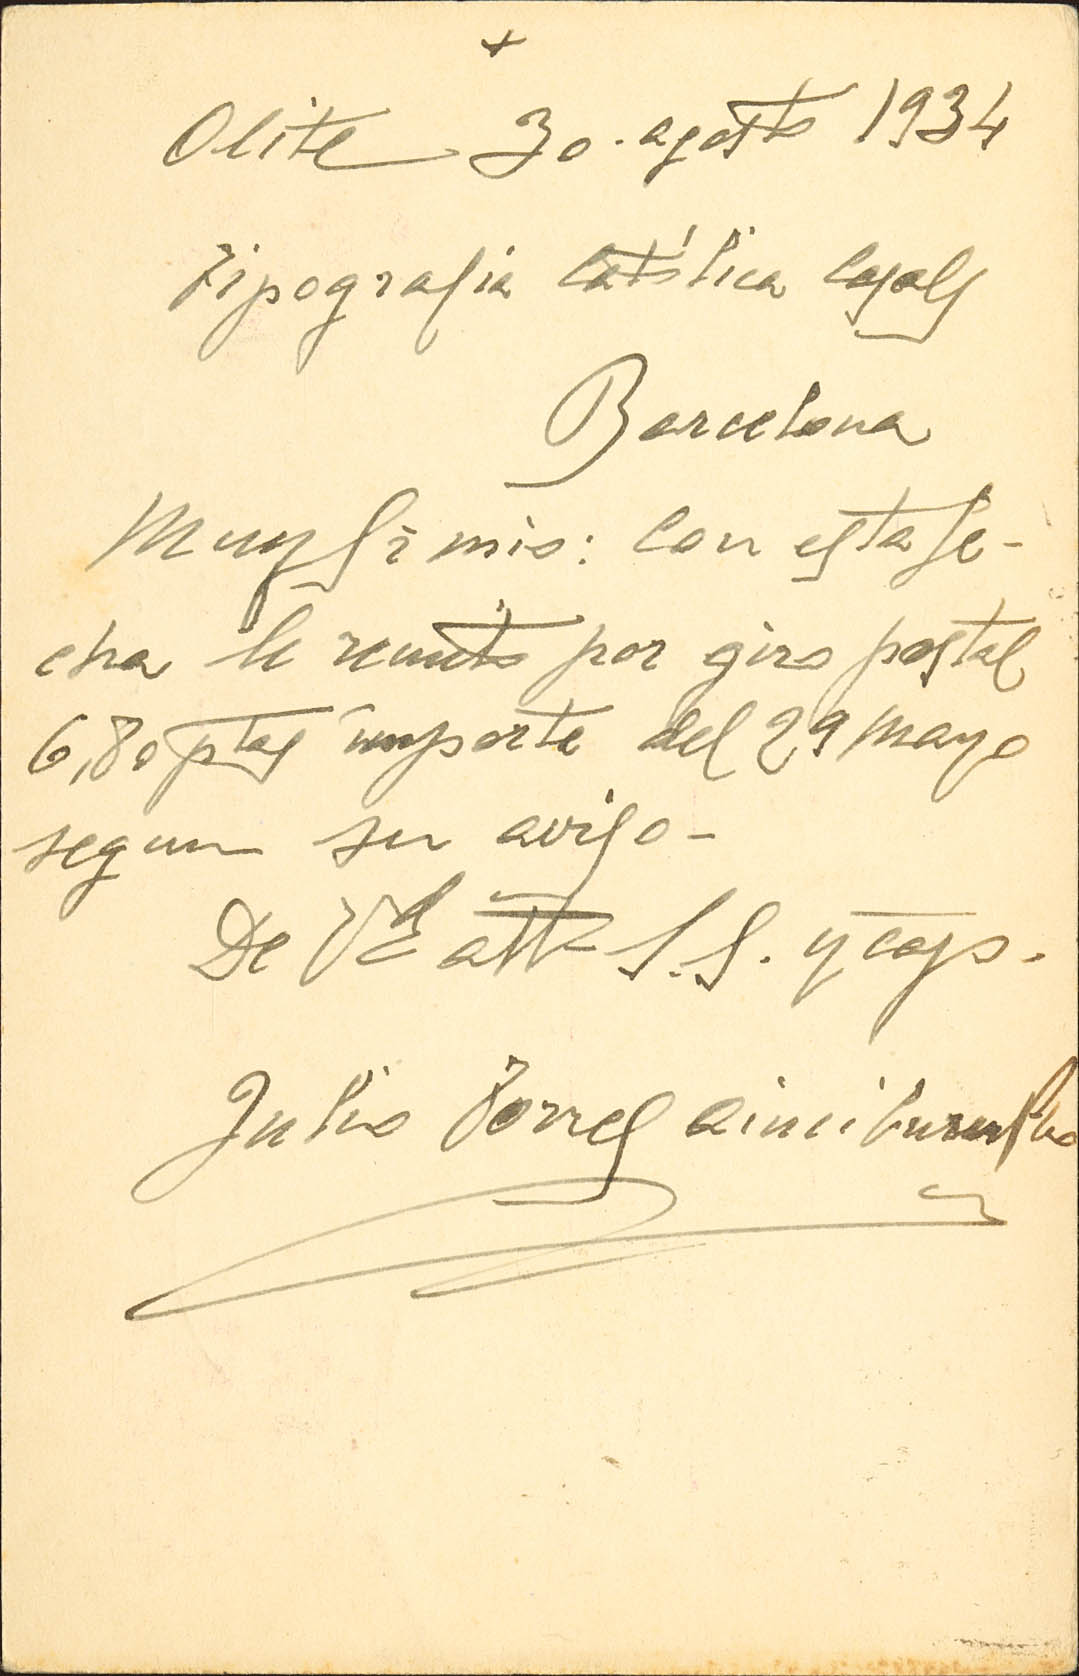 +
Olite 30 - agosto 1934
Tipografia Católica Casals
Barcelona
Muy Sr mio: Con esta fe-
cha le remito por giro postal
6,80 ptas importe del 29 Mayo
segun su aviso -
De Vd att S.S. y cap.
Julio Torres